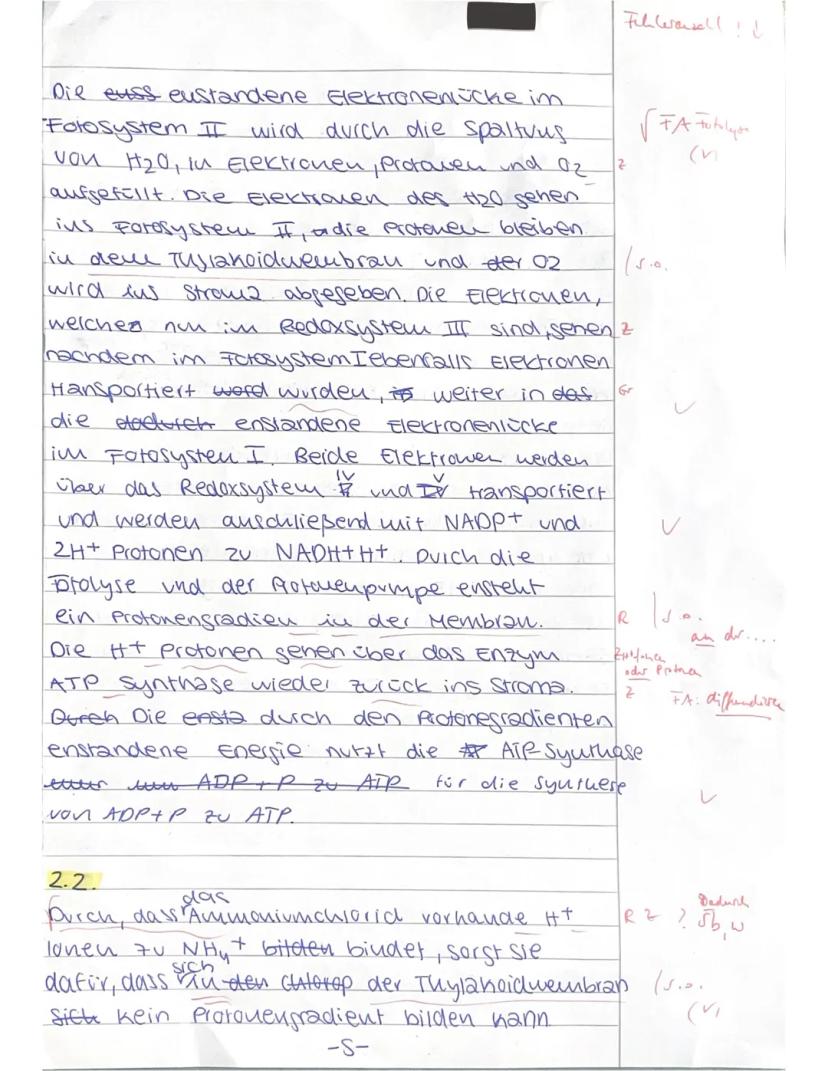 Fehleranzahl ! ↓
Die euss eustandene Elektronenlücke im
Fotosystem II wird durch die Spaltung
√ FA Fotolyse
von H2O, in Elektronen, Protonen und O2
Z (√)
aufgefüllt. Die Elektronen des H2O gehen
ins Fotosystem II, die Protonen bleiben
in dem Thylakoidmembran und der O2
/ s.o.
wird ins Stroma abgegeben. Die Elektronen,
welche nun im Redoxsystem III sind, gehen
Z
nachdem im Fotosystem I ebenfalls Elektronen
transportiert word wurden, weiter in das
Gr √
die dadurch enstandene Elektronenlücke
im Fotosystem I. Beide Elektronen werden
über das Redoxsystem IV und V transportiert
und werden anschließend mit NADP+ und
√
2H+ Protonen zu NADH+H+. Durch die
Fotolyse und der Protonenpumpe ensteht
ein Protonengradien in der Membran.
R | s.o. an der....
Die H+ Protonen gehen über das Enzym
Z H+Ionen oder Protonen
ATP Synthase wieder zurück ins Stroma.
Z FA: diffundieren
Durch Die ensta durch den Protonegradienten
enstandene Energie nutzt die ATP-Synthase
ADP + P zu ATP für die Synthese
√
von ADP+P zu ATP.
2.2.
Durch, dass das Ammoniumchlorid vorhande H+
R Z ? Dadurch Sb, w
Ionen zu NH4+ bilden bindet, sorgt sie
dafür, dass sich in den Chlorop der Thylakoidmembran
/ s.o.
sich kein Protonengradient bilden kann
(√)
-5-